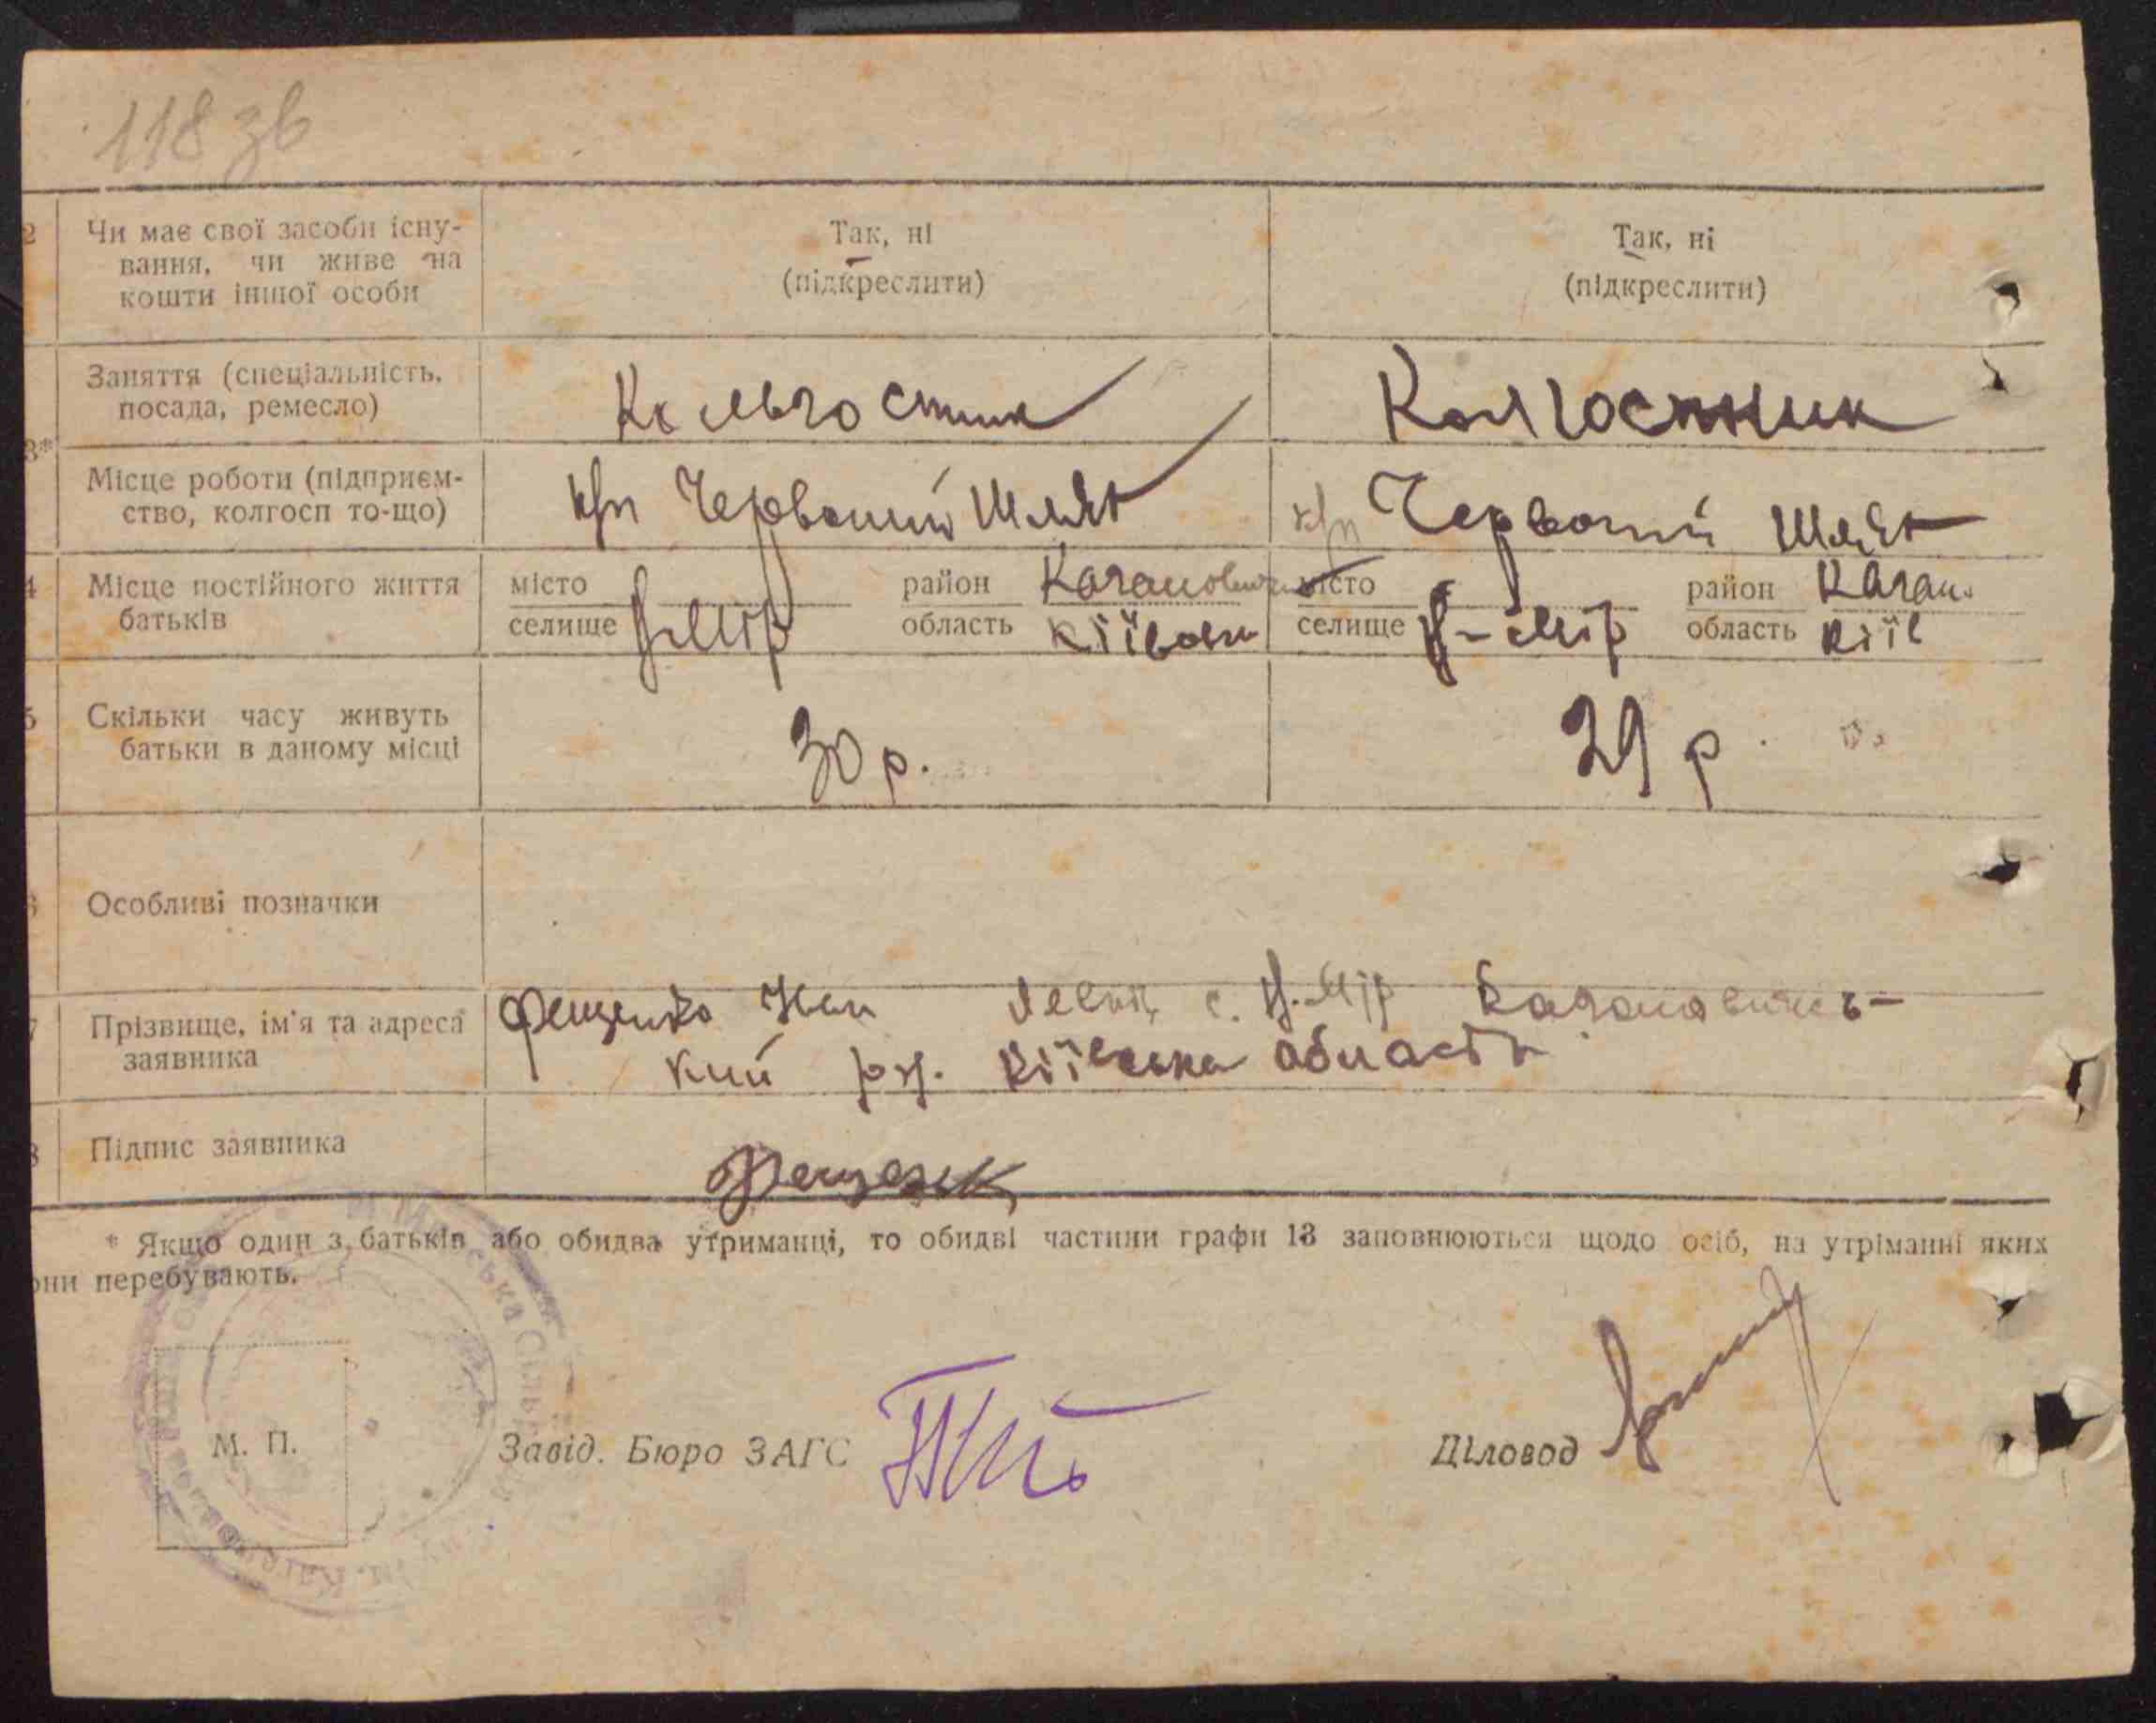 118 зв
2 Чи має свої засоби існу-
вання, чи живе на
кошти іншої особи
Так, ні
(підкреслити)
Так, ні
(підкреслити)
3* Заняття (спеціальність,
посада, ремесло)
Кольгостник
Колгоспник
Місце роботи (підприєм-
ство, колгосп то-що)
к/п Червоний Шлях
к/п Червоний Шлях
4 Місце постійного життя
батьків
місто
селище
район
область Київськ
місто
селище
район Каган.
область Київ
5 Скільки часу живуть
батьки в даному місці
30 р.
29 р.
6 Особливі позначки
7 Прізвище, ім'я та адреса
заявника
Фещенко Іван с.
кий рн. Київська область
8 Підпис заявника
* Якщо один з батьків або обидва утриманці, то обидві частини графи 13 заповнюються щодо осіб, на утріманні яких
они перебувають.
М. П.
Завід. Бюро ЗАГС
Діловод